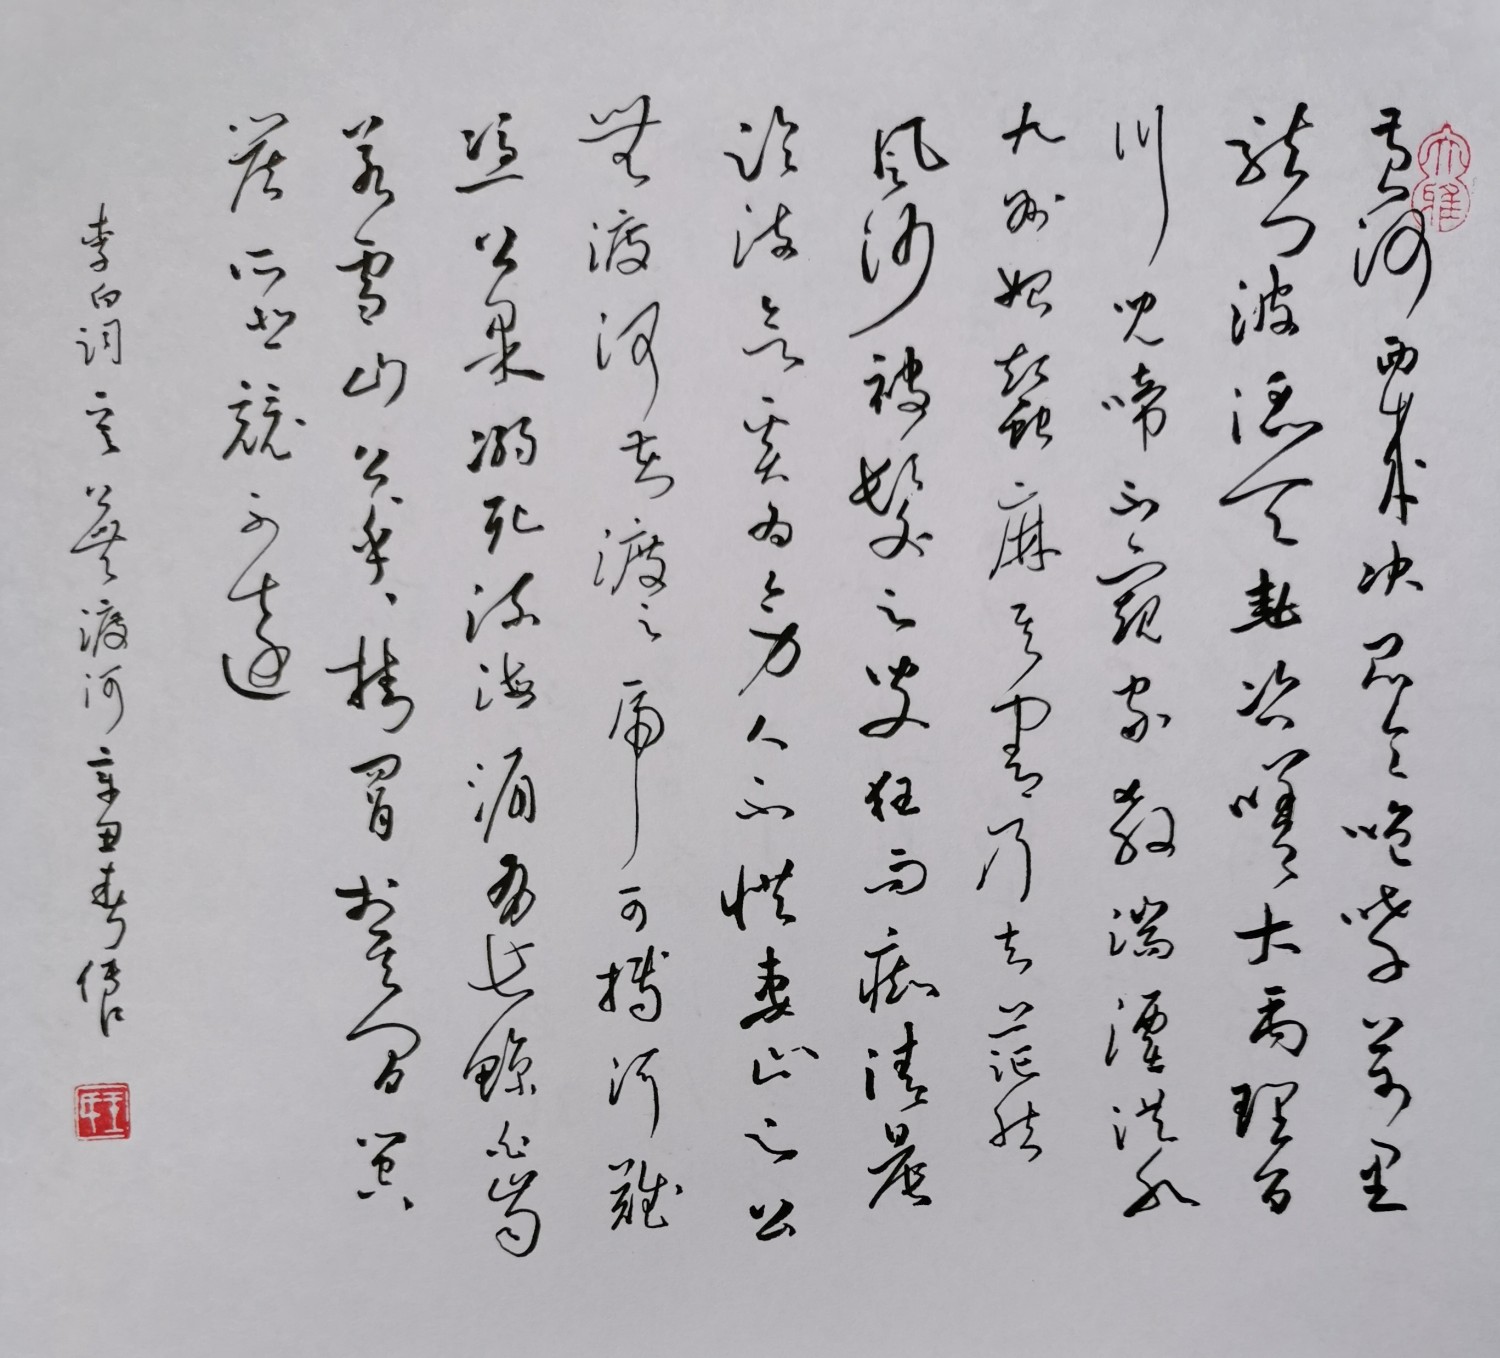 黄河西来决昆仑咆哮万里
触龙门波滔天尧咨嗟大禹理百
川儿啼不窥家杀湍湮洪水
九州始蚕麻其害乃去茫然
风沙被发之叟狂而痴清晨
临流欲奚为旁人不惜妻止之公
无渡河苦渡之虎可搏河难
凭公果溺死流海湄有长鲸白齿
若雪山公乎公乎挂罥于其间箜
篌所悲竟不还
李白词意 公无渡河 辛丑春
大雅